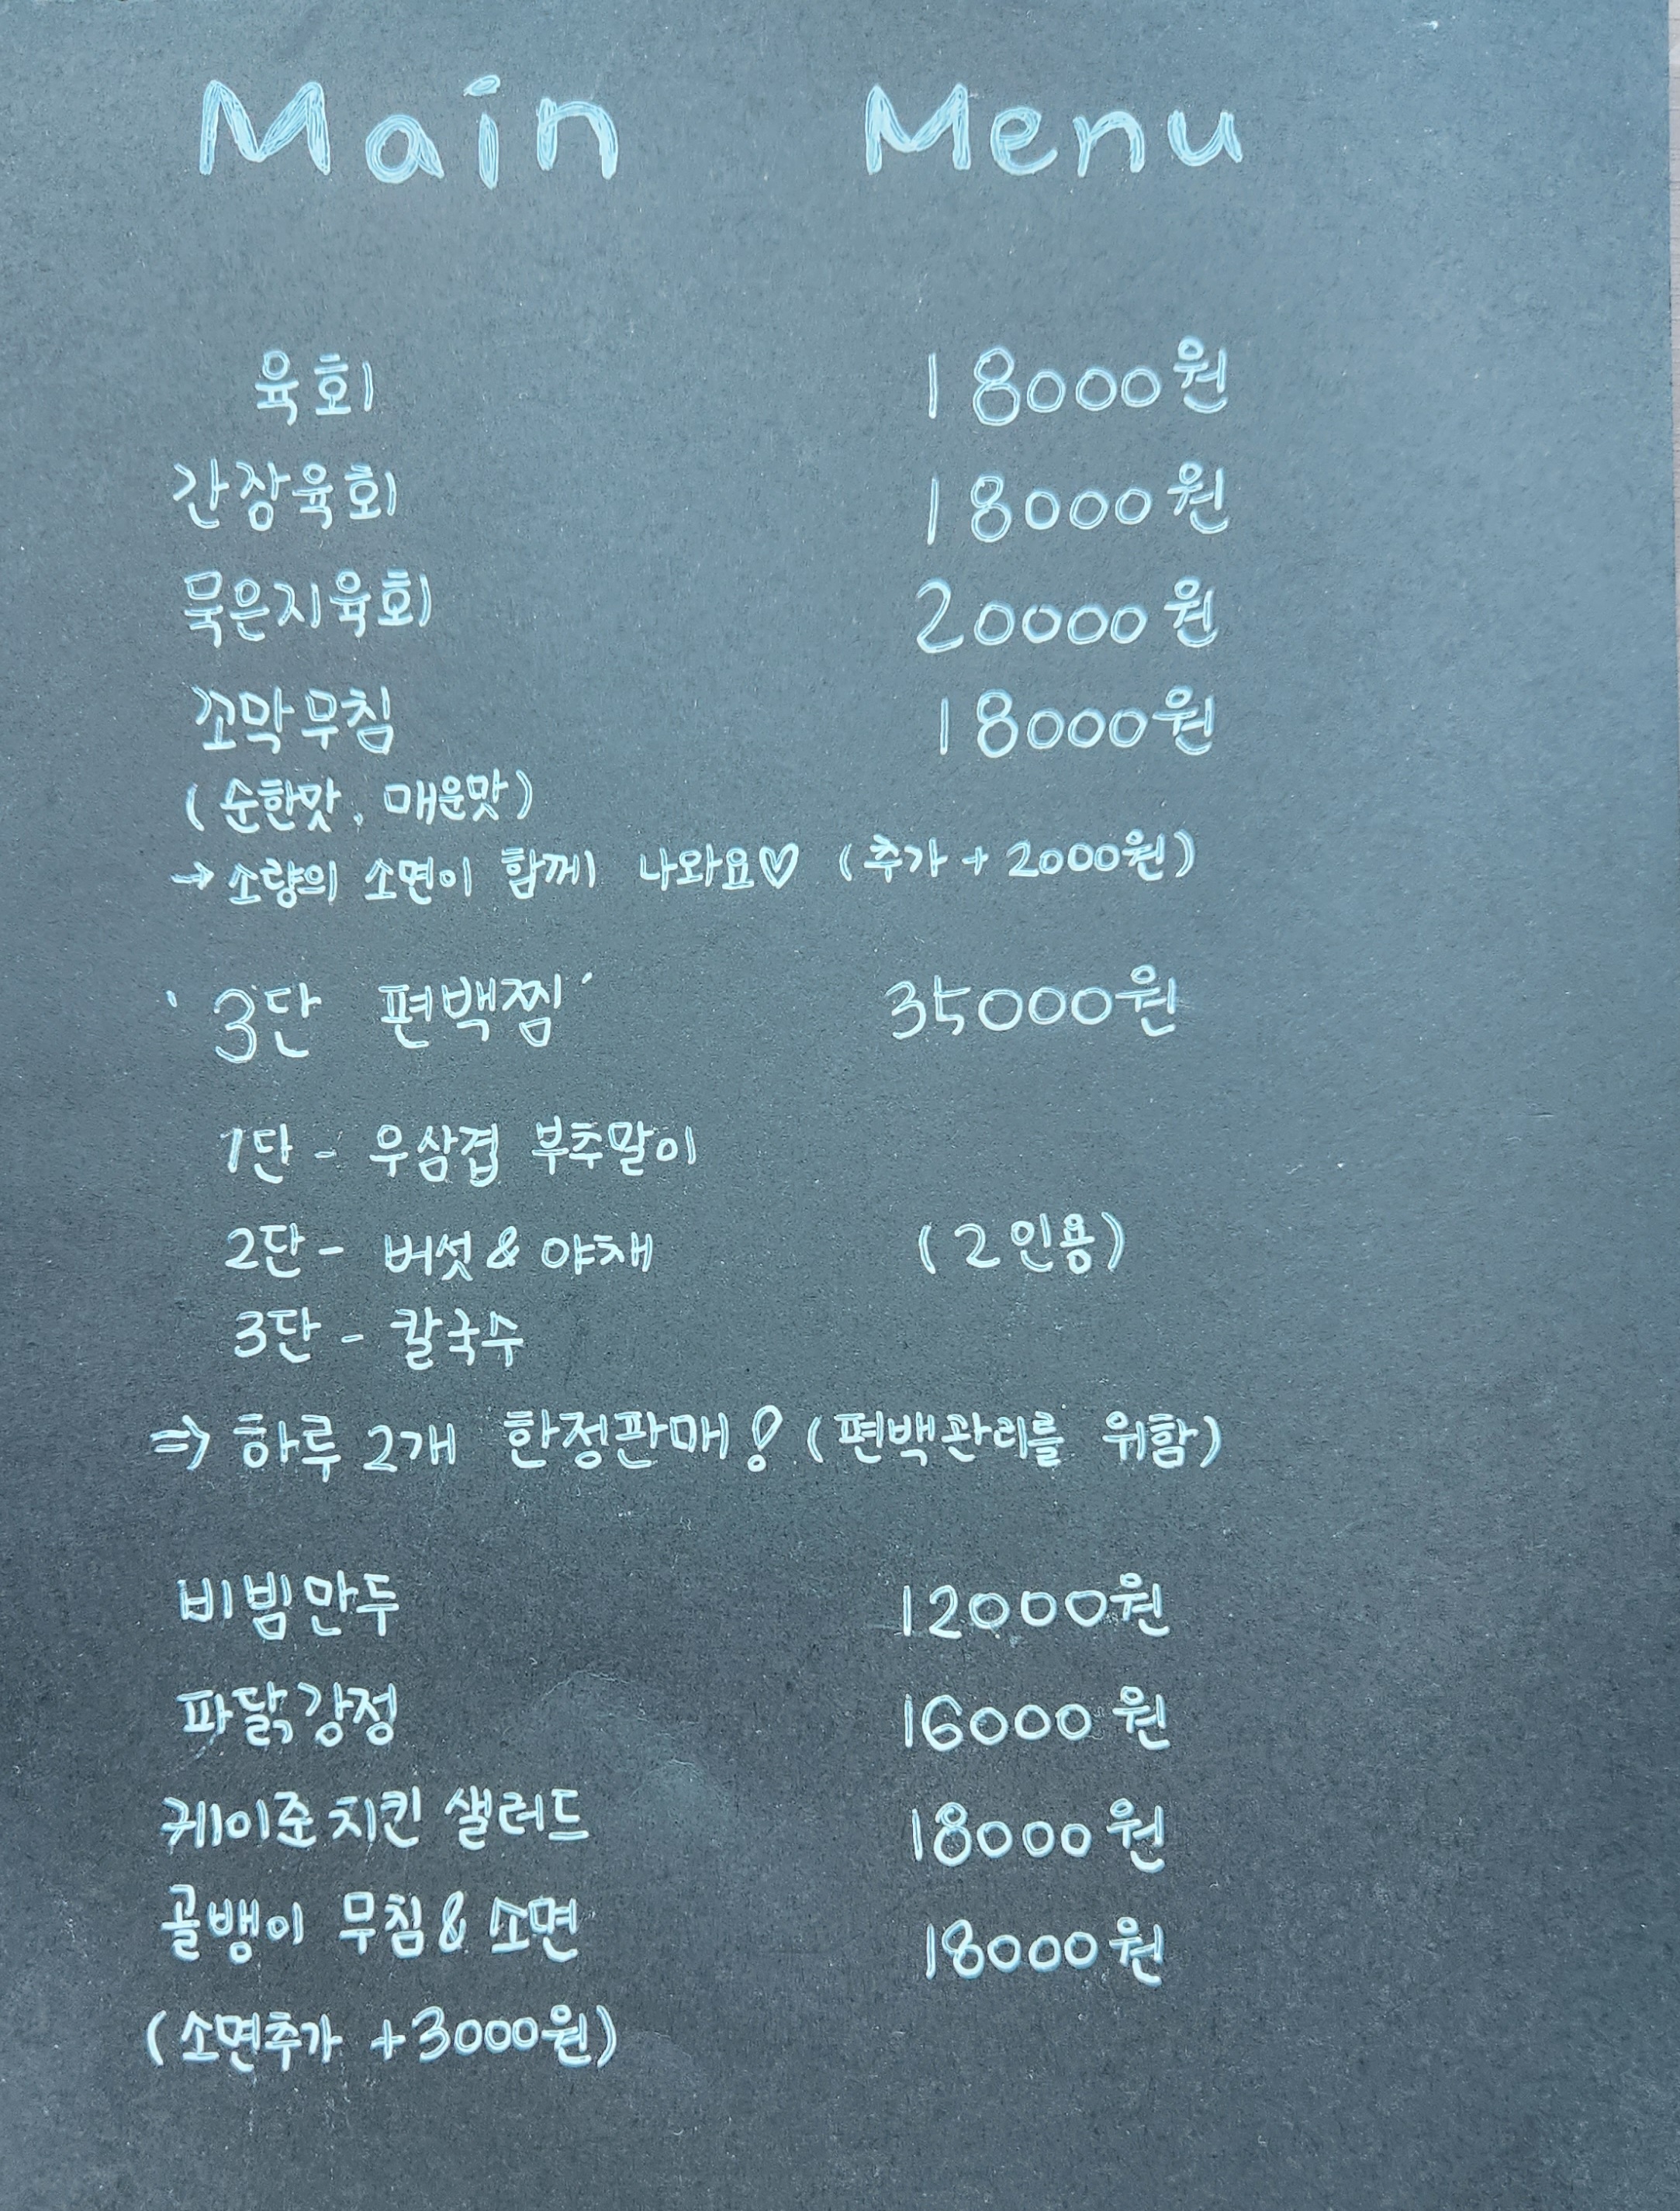 Main Menu
육회 18000원
간장육회 18000원
묵은지육회 20000원
꼬막무침 18000원
(순한맛, 매운맛)
→ 소량의 소면이 함께 나와요♡ (추가 + 2000원)
'3단 편백찜' 35000원
1단 - 우삼겹 부추말이
2단 - 버섯 & 야채 (2인용)
3단 - 칼국수
⇒ 하루 2개 한정판매! (편백관리를 위함)
비빔만두 12000원
파닭강정 16000원
케이준치킨 샐러드 18000원
골뱅이 무침 & 소면 18000원
(소면추가 +3000원)